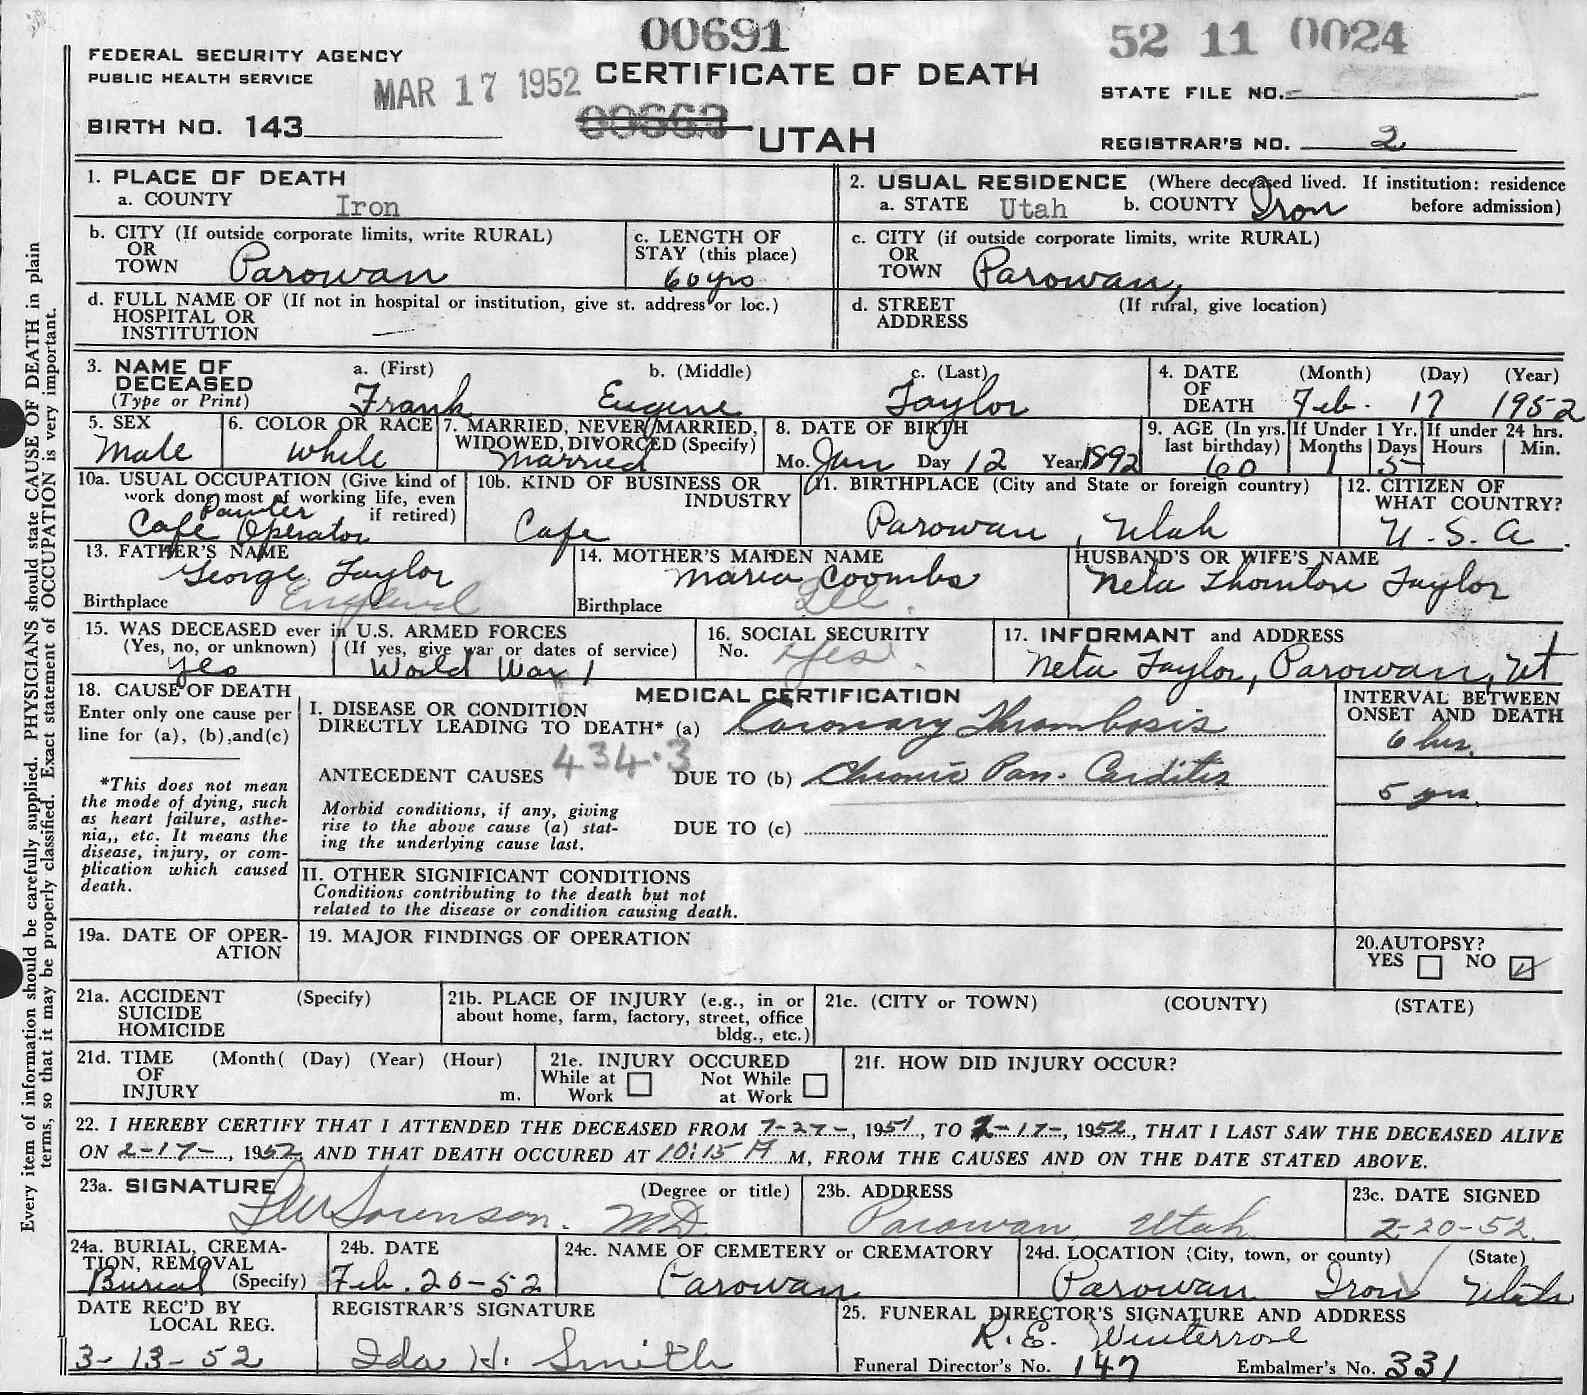 00691
52 11 0024
FEDERAL SECURITY AGENCY
PUBLIC HEALTH SERVICE
MAR 17 1952
CERTIFICATE OF DEATH
STATE FILE NO.
BIRTH NO. 143
00663
UTAH
REGISTRAR'S NO. 2
1. PLACE OF DEATH
a. COUNTY Iron
2. USUAL RESIDENCE (Where deceased lived. If institution: residence before admission)
a. STATE Utah b. COUNTY Iron
b. CITY (If outside corporate limits, write RURAL)
OR
TOWN Parowan
c. LENGTH OF
STAY (this place)
60 yrs
c. CITY (if outside corporate limits, write RURAL)
OR
TOWN Parowan,
d. FULL NAME OF (If not in hospital or institution, give st. address or loc.)
HOSPITAL OR
INSTITUTION —
d. STREET (If rural, give location)
ADDRESS
3. NAME OF
DECEASED
(Type or Print)
a. (First) b. (Middle) c. (Last)
Frank Eugene Taylor
4. DATE (Month) (Day) (Year)
OF
DEATH Feb. 17 1952
5. SEX
Male
6. COLOR OR RACE
White
7. MARRIED, NEVER MARRIED,
WIDOWED, DIVORCED (Specify)
Married
8. DATE OF BIRTH
Mo. Jan Day 12 Year 1892
9. AGE (In yrs.
last birthday)
60
If Under 1 Yr.
Months Days
1 5
If under 24 hrs.
Hours Min.
10a. USUAL OCCUPATION (Give kind of
work done most of working life, even
if retired)
Painter
Cafe Operator
10b. KIND OF BUSINESS OR
INDUSTRY
Cafe
11. BIRTHPLACE (City and State or foreign country)
Parowan, Utah
12. CITIZEN OF
WHAT COUNTRY?
U.S.A.
13. FATHER'S NAME
George Taylor
Birthplace England
14. MOTHER'S MAIDEN NAME
Maria Coombs
Birthplace
HUSBAND'S OR WIFE'S NAME
Neta Thornton Taylor
15. WAS DECEASED ever in U.S. ARMED FORCES
(Yes, no, or unknown) (If yes, give war or dates of service)
Yes World War 1
16. SOCIAL SECURITY
No. Yes.
17. INFORMANT and ADDRESS
Neta Taylor, Parowan, Ut
18. CAUSE OF DEATH
Enter only one cause per
line for (a), (b), and(c)
*This does not mean
the mode of dying, such
as heart failure, asthe-
nia,, etc. It means the
disease, injury, or com-
plication which caused
death.
MEDICAL CERTIFICATION
I. DISEASE OR CONDITION
DIRECTLY LEADING TO DEATH* (a) Coronary Thrombosis
434.3
ANTECEDENT CAUSES DUE TO (b) Chronic Pan-Carditis
Morbid conditions, if any, giving
rise to the above cause (a) stat-
ing the underlying cause last.
DUE TO (c)
INTERVAL BETWEEN
ONSET AND DEATH
6 hrs.
5 yrs.
II. OTHER SIGNIFICANT CONDITIONS
Conditions contributing to the death but not
related to the disease or condition causing death.
19a. DATE OF OPER-
ATION
19. MAJOR FINDINGS OF OPERATION
20.AUTOPSY?
YES NO
21a. ACCIDENT (Specify)
SUICIDE
HOMICIDE
21b. PLACE OF INJURY (e.g., in or
about home, farm, factory, street, office
bldg., etc.)
21c. (CITY or TOWN) (COUNTY) (STATE)
21d. TIME (Month( (Day) (Year) (Hour)
OF
INJURY m.
21e. INJURY OCCURED
While at Work Not While at Work
21f. HOW DID INJURY OCCUR?
22. I HEREBY CERTIFY THAT I ATTENDED THE DECEASED FROM 7-27-, 1951, TO 2-17-, 1952, THAT I LAST SAW THE DECEASED ALIVE
ON 2-17-, 1952 AND THAT DEATH OCCURED AT 10:15 A M, FROM THE CAUSES AND ON THE DATE STATED ABOVE.
23a. SIGNATURE (Degree or title)
Sorenson. MD
23b. ADDRESS
Parowan, Utah
23c. DATE SIGNED
2-20-52.
24a. BURIAL, CREMA-
TION, REMOVAL
Burial (Specify)
24b. DATE
Feb. 20-52
24c. NAME OF CEMETERY or CREMATORY
Parowan
24d. LOCATION (City, town, or county) (State)
Parowan Iron Utah
DATE REC'D BY
LOCAL REG.
3-13-52
REGISTRAR'S SIGNATURE
Ida H. Smith
25. FUNERAL DIRECTOR'S SIGNATURE AND ADDRESS
R.E. Winterrose
Funeral Director's No. 147 Embalmer's No. 331
Every item of information should be carefully supplied. PHYSICIANS should state CAUSE OF DEATH in plain
terms, so that it may be properly classified. Exact statement of OCCUPATION is very important.